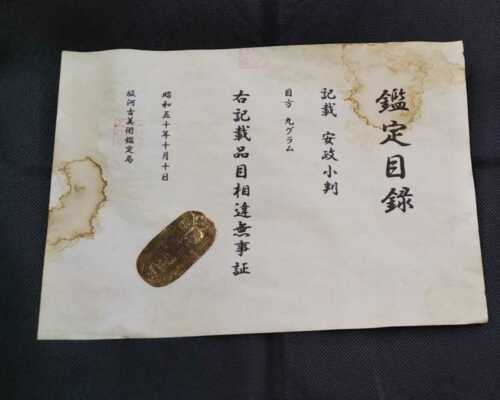 鑑定目録
記載 安政小判
目方 九グラム
右記載品目相違無事証
昭和五十年十月十日
駿河古美術鑑定局